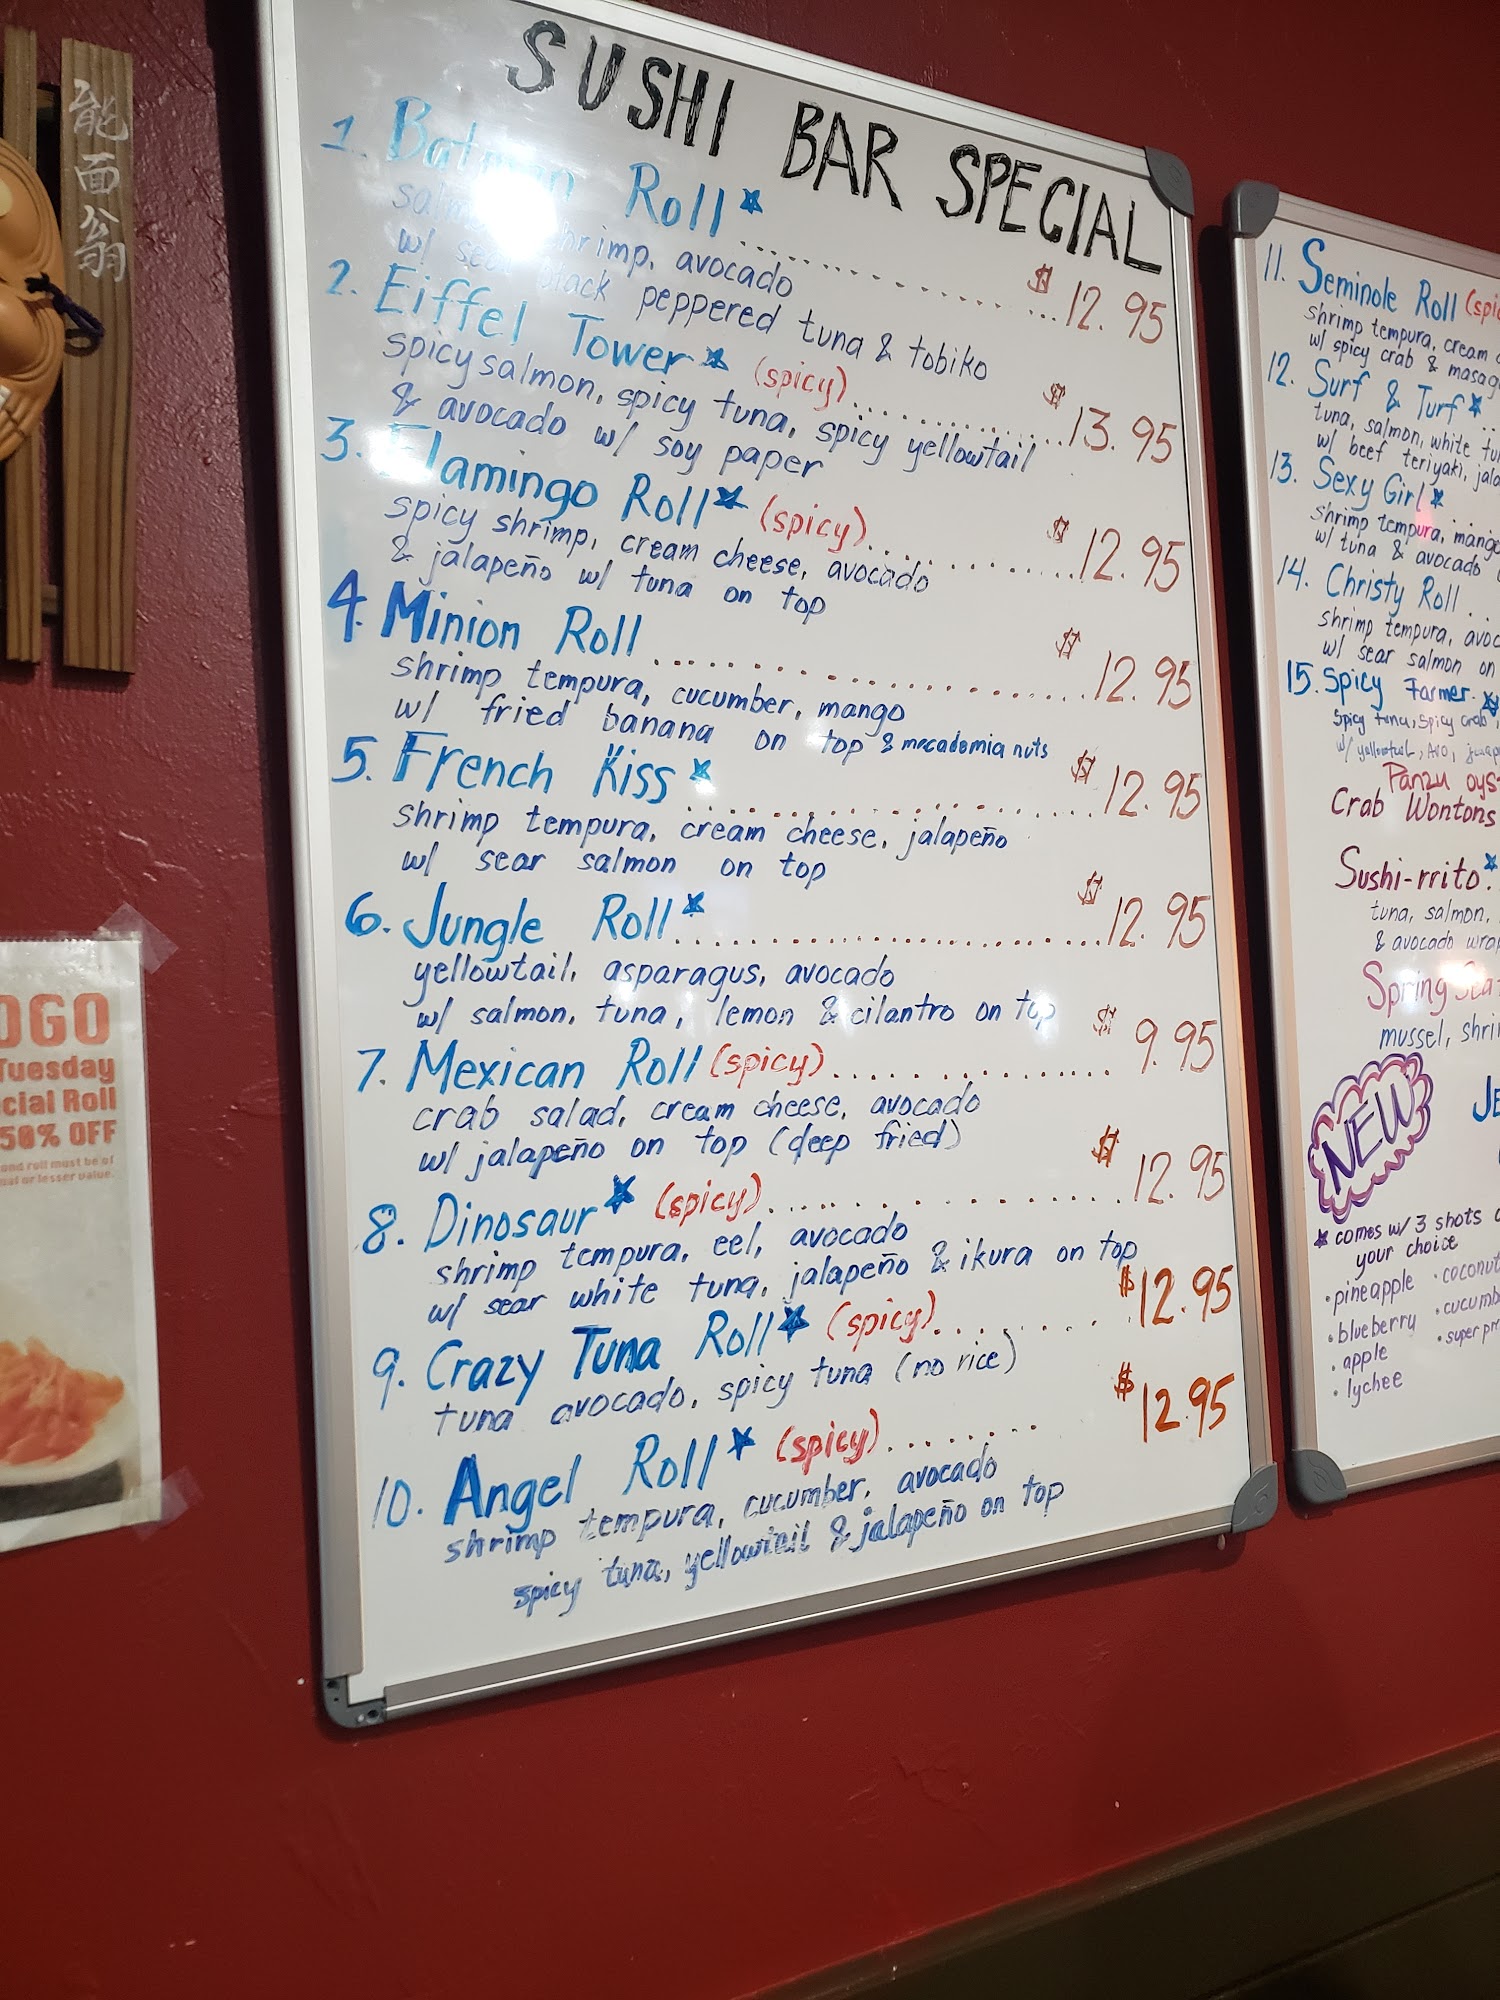 能面翁
OGO
Tuesday
cial Roll
50% OFF
ond roll must be of
ual or lesser value.
SUSHI BAR SPECIAL
1. Batman Roll* ............ $12.95
salmon, shrimp, avocado
w/ sear black peppered tuna & tobiko
2. Eiffel Tower* (spicy) ............ $13.95
spicy salmon, spicy tuna, spicy yellowtail
& avocado w/ soy paper
3. Flamingo Roll* (spicy) ............ $12.95
spicy shrimp, cream cheese, avocado
& jalapeño w/ tuna on top
4. Minion Roll ............ $12.95
shrimp tempura, cucumber, mango
w/ fried banana on top & macadamia nuts
5. French Kiss* ............ $12.95
shrimp tempura, cream cheese, jalapeño
w/ sear salmon on top
6. Jungle Roll* ............ $12.95
yellowtail, asparagus, avocado
w/ salmon, tuna, lemon & cilantro on top
7. Mexican Roll (spicy) ............ $9.95
crab salad, cream cheese, avocado
w/ jalapeño on top (deep fried)
8. Dinosaur* (spicy) ............ $12.95
shrimp tempura, eel, avocado
w/ sear white tuna, jalapeño & ikura on top
9. Crazy Tuna Roll* (spicy) ............ $12.95
tuna avocado, spicy tuna (no rice)
10. Angel Roll* (spicy) ............ $12.95
shrimp tempura, cucumber, avocado
spicy tuna, yellowtail & jalapeño on top
11. Seminole Roll (spic
shrimp tempura, cream
w/ spicy crab & masag
12. Surf & Turf* ..
tuna, salmon, white tu
w/ beef teriyaki, jala
13. Sexy Girl*
shrimp tempura, mang
w/ tuna & avocado
14. Christy Roll ..
shrimp tempura, avoc
w/ sear salmon on
15. Spicy Farmer *
Spicy tuna, spicy crab,
w/ yellowtail, avo, jalap
Panzu oyst
Crab Wontons
Sushi-rrito*.
tuna, salmon,
& avocado wrap
Spring Sea
mussel, shri
NEW
JE
* comes w/ 3 shots o
your choice
• pineapple • coconut
• blueberry • cucumb
• apple • super pr
• lychee